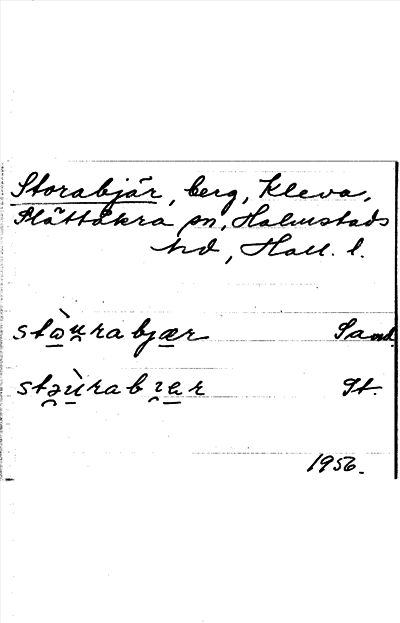 Storabjär, berg, Kleva,
Slättåkra sn, Halmstads
hd, Hall. l.
stòu̯rabjær Sand.
stə̯ùrabi̯er St.
1956.